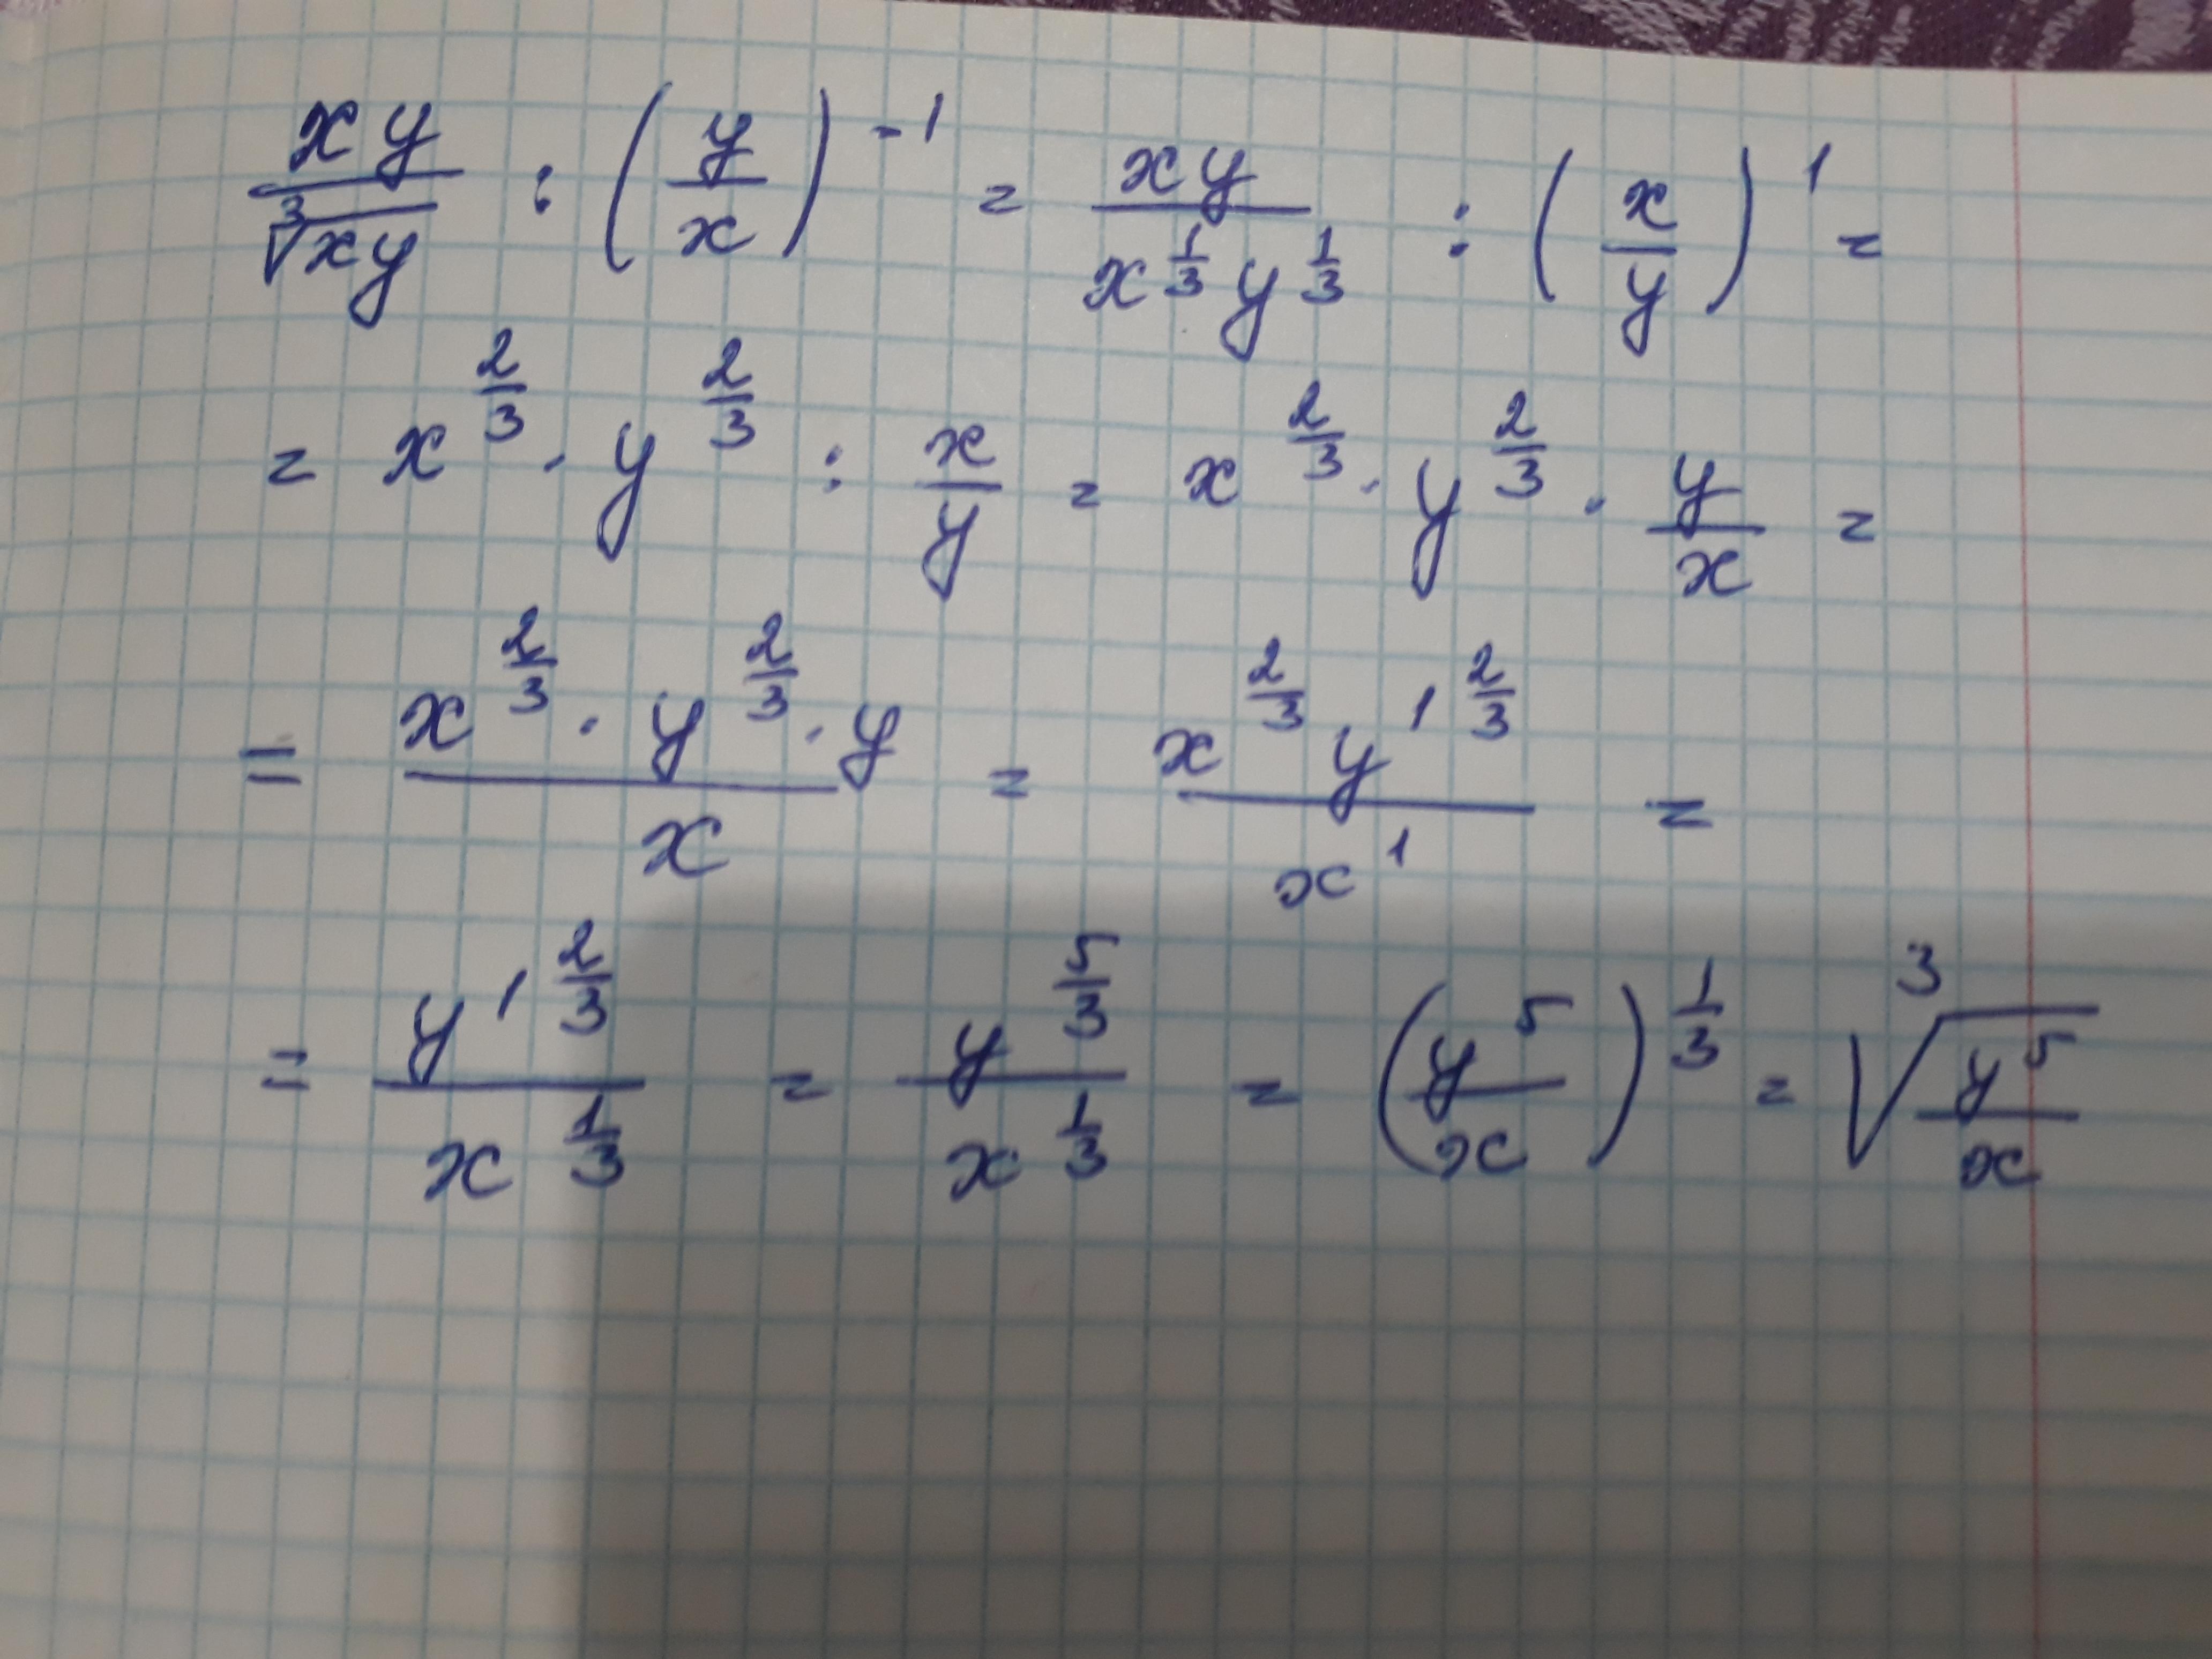 \frac{xy}{\sqrt[3]{xy}} : \left(\frac{y}{x}\right)^{-1} = \frac{xy}{x^{\frac{1}{3}} y^{\frac{1}{3}}} : \left(\frac{x}{y}\right)^{1} =
= x^{\frac{2}{3}} \cdot y^{\frac{2}{3}} : \frac{x}{y} = x^{\frac{2}{3}} \cdot y^{\frac{2}{3}} \cdot \frac{y}{x} =
= \frac{x^{\frac{2}{3}} \cdot y^{\frac{2}{3}} \cdot y}{x} = \frac{x^{\frac{2}{3}} y^{1\frac{2}{3}}}{x^{1}} =
= \frac{y^{1\frac{2}{3}}}{x^{\frac{1}{3}}} = \frac{y^{\frac{5}{3}}}{x^{\frac{1}{3}}} = \left(\frac{y^{5}}{x}\right)^{\frac{1}{3}} = \sqrt[3]{\frac{y^{5}}{x}}